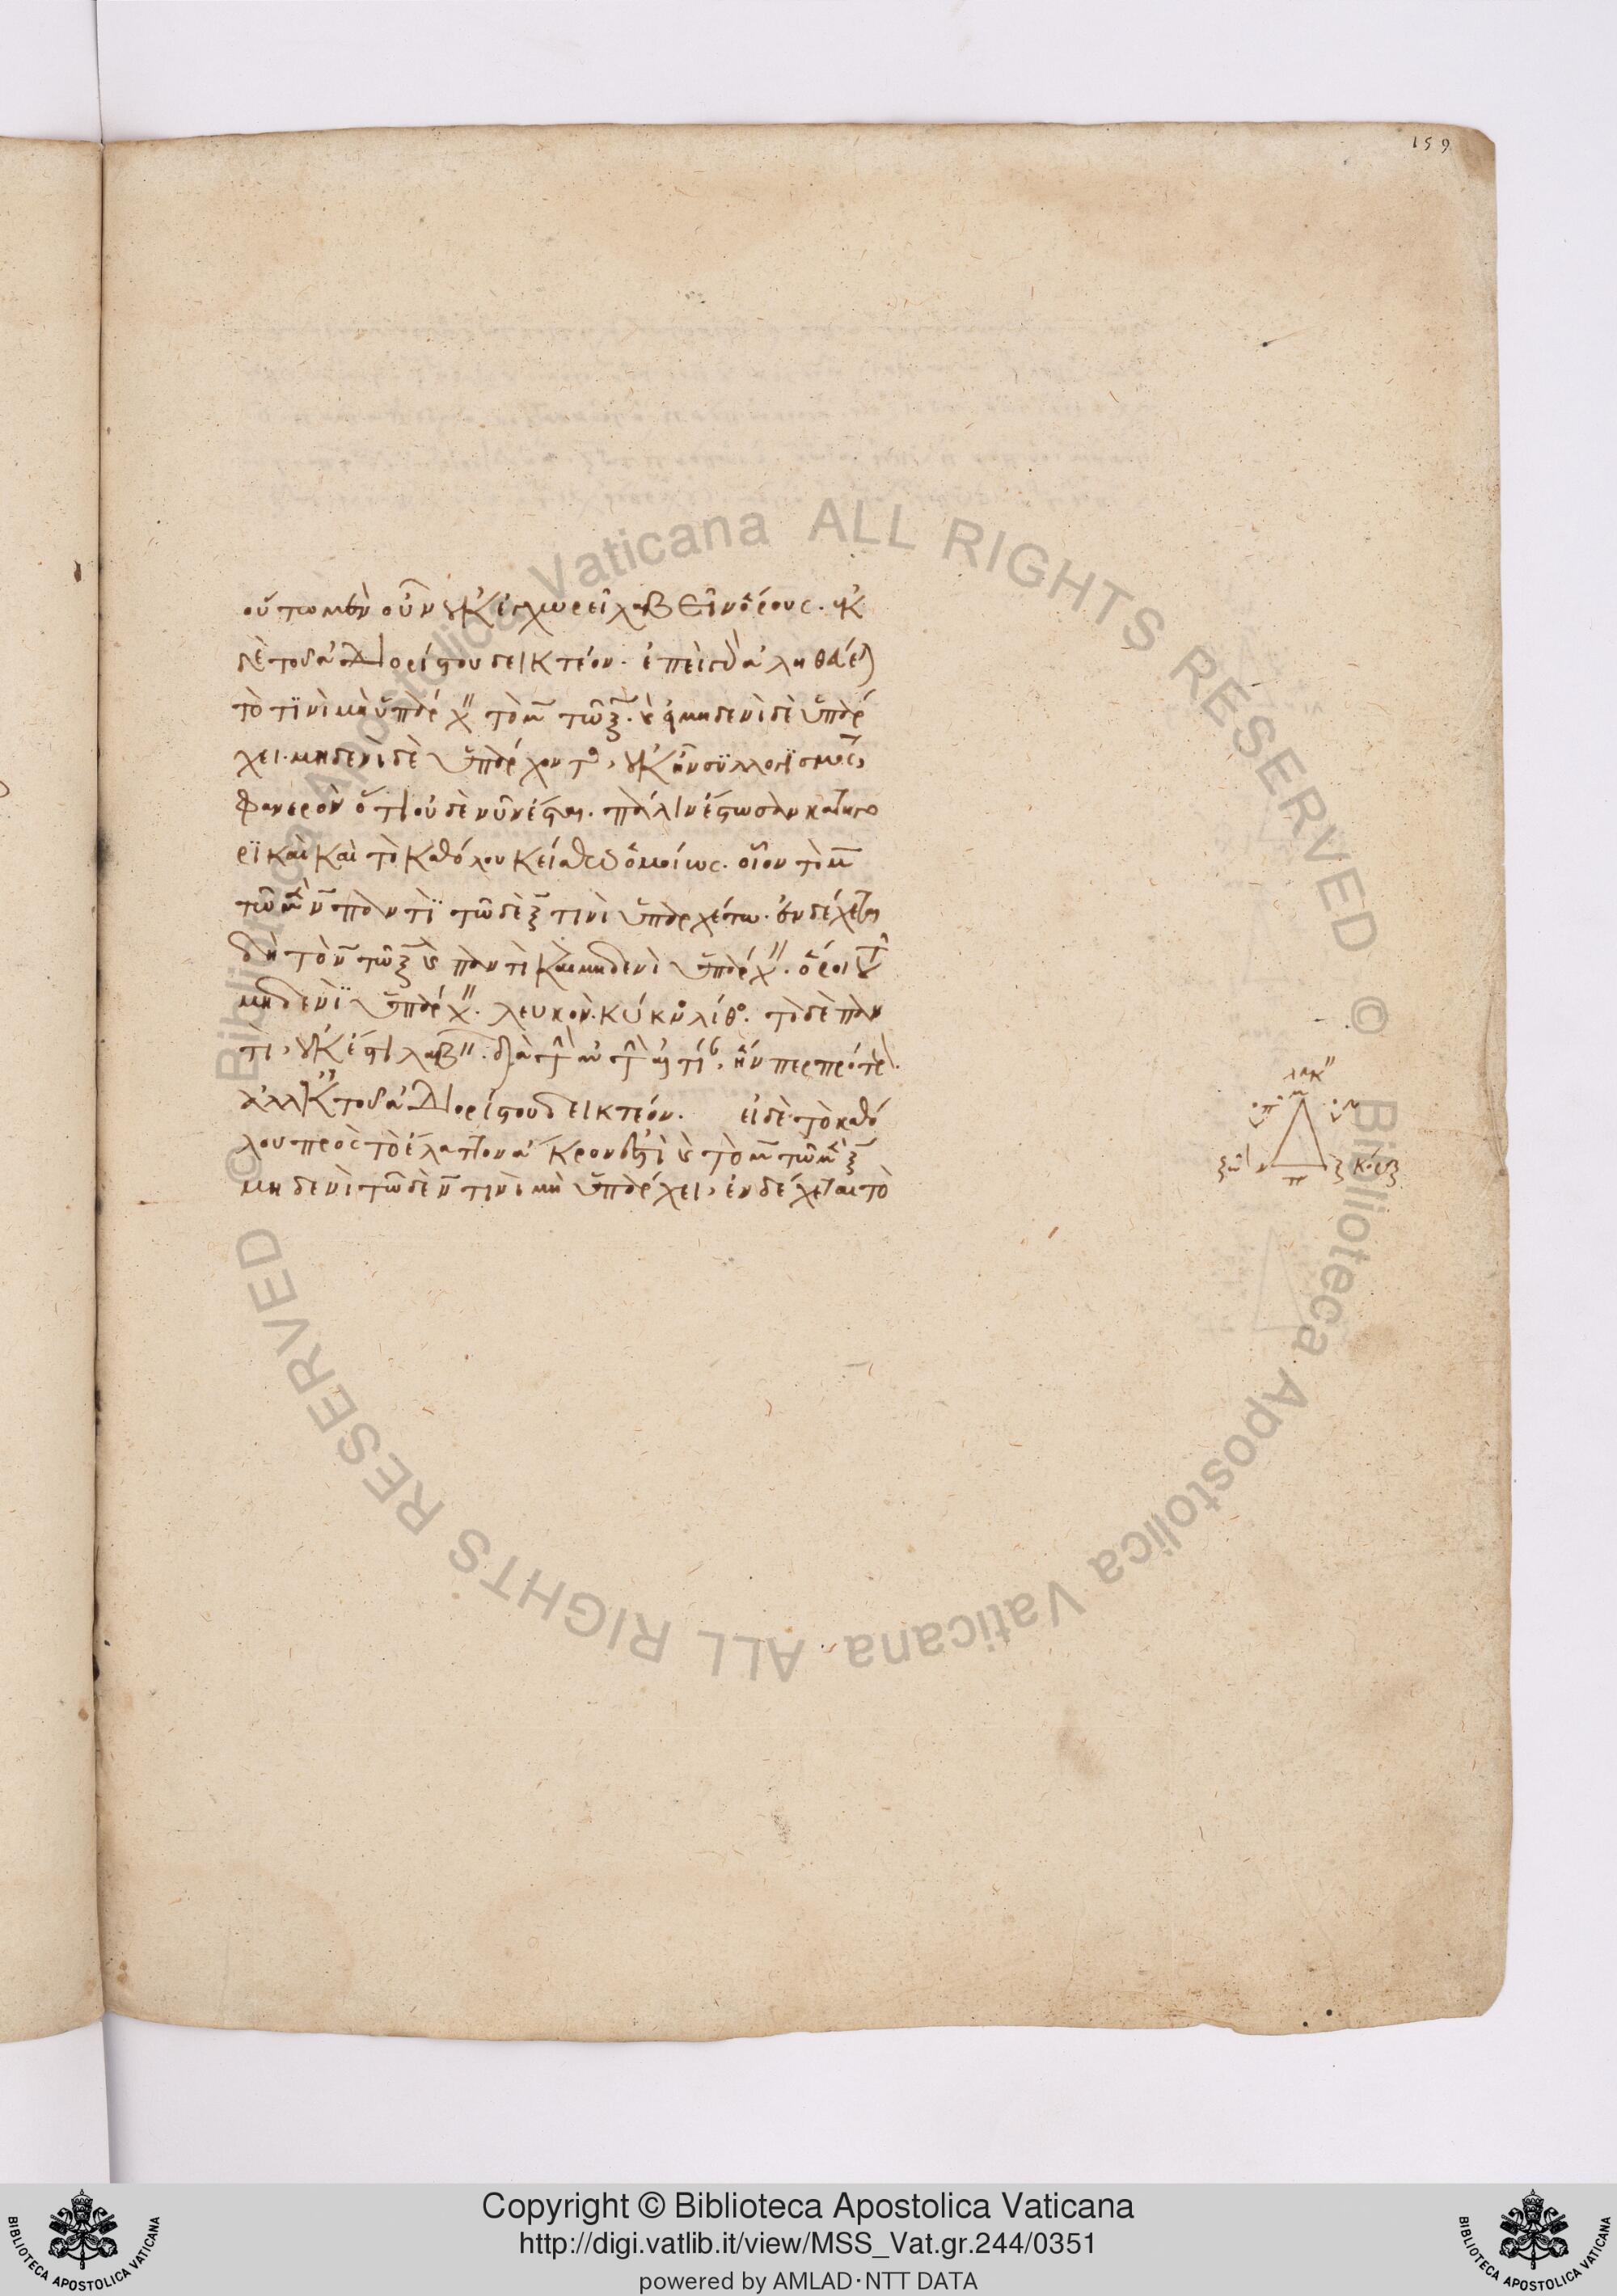 159
οὕτω μὲν οὖν οὐκ ἐγχωρεῖ λαβεῖν ὅρους. ἐκ
δὲ τοῦ ἀδιορίστου δεικτέον. ἐπεὶ γὰρ ἀληθεύεται
τὸ τινὶ μὴ ὑπάρχειν τὸ μ τῷ ξ. καὶ εἰ μηδενὶ δὲ ὑπάρ
χει. μηδενὶ δὲ ὑπάρχοντος, οὐκ ἦν συλλογισμός,
φανερὸν ὅτι οὐδὲ νῦν ἔσται. πάλιν ἔστωσαν κατηγο
ρικαὶ καὶ τὸ καθόλου κείσθω ὁμοίως. οἷον τὸ μ
τῷ μὲν ν παντὶ τῷ δὲ ξ τινὶ ὑπαρχέτω. ἐνδέχεται
δὴ τὸ ν τῷ ξ καὶ παντὶ καὶ μηδενὶ ὑπάρχειν. ὅροι τοῦ
μηδενὶ ὑπάρχειν. λευκὸν. κύκνος λίθος. τὸ δὲ παν
τὶ, οὐκ ἔστι λαβεῖν. διὰ τὴν αὐτὴν αἰτίαν, ἥνπερ πρότερον.
ἀλλ' ἐκ τοῦ ἀδιορίστου δεικτέον. εἰ δὲ τὸ καθό
λου πρὸς τὸ ἔλαττον ἄκρον ἐστὶ καὶ τὸ μ τῷ μὲν ξ
μηδενὶ τῷ δὲ ν τινὶ μὴ ὑπάρχει, ἐνδέχεται τὸ
μ
ν
ξ
π
Copyright © Biblioteca Apostolica Vaticana
http://digi.vatlib.it/view/MSS_Vat.gr.244/0351
powered by AMLAD·NTT DATA
BIBLIOTECA APOSTOLICA VATICANA
BIBLIOTECA APOSTOLICA VATICANA
© Biblioteca Apostolica Vaticana ALL RIGHTS RESERVED
© Biblioteca Apostolica Vaticana ALL RIGHTS RESERVED